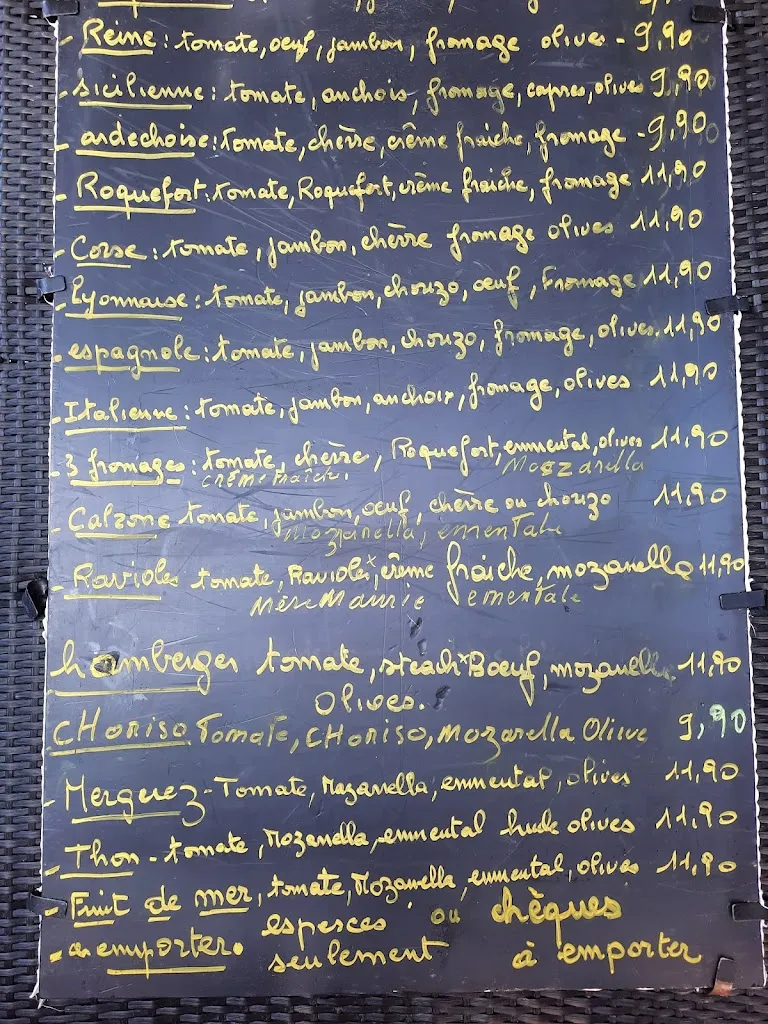 - Reine : tomate, oeuf, jambon, fromage olives - 9,90
- sicilienne : tomate, anchois, fromage, capres, olives 9,90
- ardechoise : tomate, chèvre, crême fraiche, fromage - 9,90
- Roquefort : tomate, Roquefort, crême fraiche, fromage 11,90
- Corse : tomate, jambon, chèvre fromage olives 11,90
- Lyonnaise : tomate, jambon, chorizo, oeuf, Fromage 11,90
- espagnole : tomate, jambon, chorizo, fromage, olives. 11,90
- Italienne : tomate, jambon, anchoix, fromage, olives 11,90
- 3 fromages : tomate, chèvre, Roquefort, emmental, olives 11,90
crême fraîche, Mozzarella
- Calzone tomate, jambon, oeuf, chèvre ou chorizo 11,90
Mozzarella, ementale
- Ravioles tomate, Ravioles, crême fraiche, mozarella 11,90
Mère Maurie ementale
hamberger tomate, steack Boeuf, mozarella 11,90
Olives.
CHoriso Tomate, CHoriso, Mozarella Olives 9,90
- Merguez - Tomate, Mozarella, emmental, olives 11,90
- Thon - tomate, Mozarella, emmental huile olives 11,90
- Fruit de mer, tomate, Mozarella, emmental, olives 11,90
- a emporter. especes ou chèques
seulement à emporter